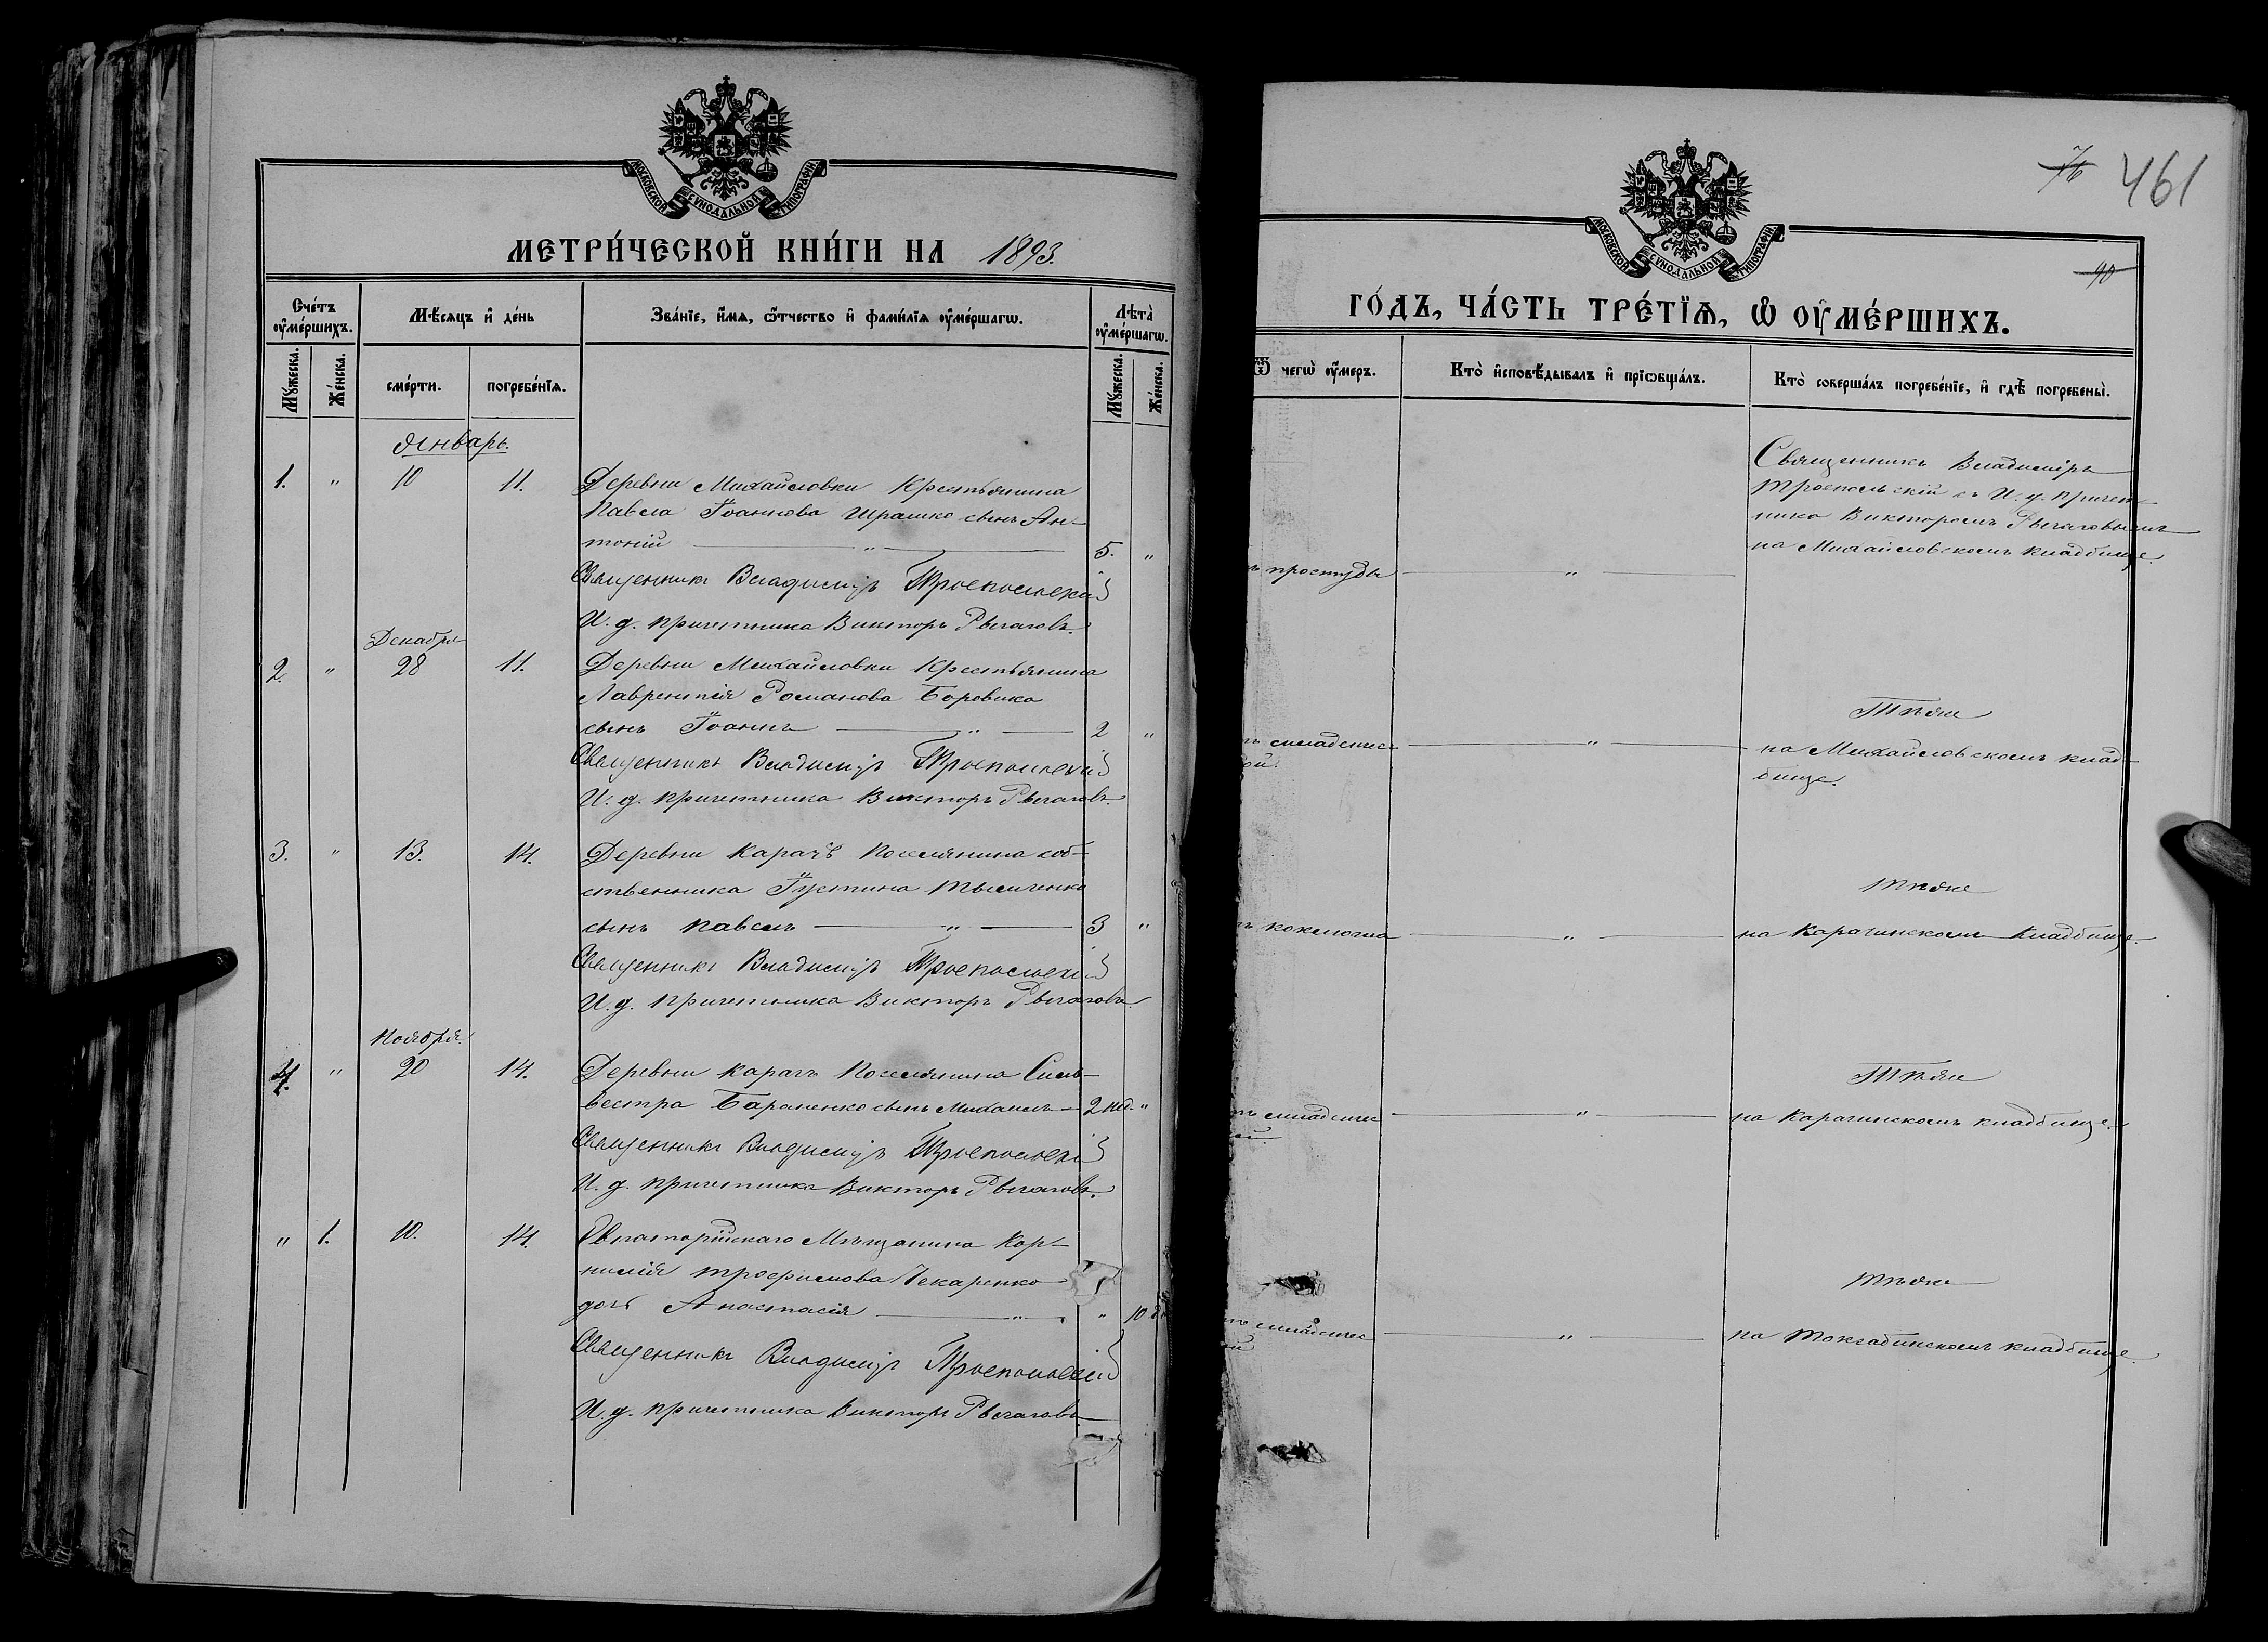 МОСКОВСКОЙ СѴНОДАЛЬНОЙ ТИПОГРАФІИ.
МЕТРИ́ЧЕСКОЙ КНИ́ГИ НА 1893.
Сче́тъ ᲂу҆ме́ршихъ.
Мѣ́сяцъ и҆ де́нь
Зва́нїе, и҆́мя, ѻ҆́тчество и҆ фами́лїя ᲂу҆ме́ршагѡ.
Лѣ́та ᲂу҆ме́ршагѡ.
Мꙋ́жеска.
Же́нска.
сме́рти.
погребе́нїя.
Мꙋ́жеска.
Же́нска.
Январь.
1. " 10 11. Деревни Михайловки Крестьянина
Павла Іоаннова Ирашко сынъ Ан-
тоній — " — 5. "
Священникъ Владиміръ Троепольскій
И. д. причетника Викторъ Рычаговъ.
Декабря
2. " 28 11. Деревни Михайловки Крестьянина
Лаврентія Романова Боровика
сынъ Іоаннъ — " — 2 "
Священникъ Владиміръ Троепольскій
И. д. причетника Викторъ Рычаговъ.
3. " 13. 14. Деревни Карачъ Поселянина соб-
ственника Іустина Тысиченко
сынъ Павелъ — " — 3 "
Священникъ Владиміръ Троепольскій
И. д. причетника Викторъ Рычаговъ.
Ноября.
4. " 20 14. Деревни Карачъ Поселянина Силь-
вестра Бараненко сынъ Михаилъ — 2 нед. "
Священникъ Владиміръ Троепольскій
И. д. причетника Викторъ Рычаговъ.
" 1. 10. 14. Евпаторійскаго Мѣщанина Кор-
нилія Трофимова Чекаренко
дочь Анастасія — " — " 10
Священникъ Владиміръ Троепольскій
И. д. причетника Викторъ Рычаговъ
76 461
90
МОСКОВСКОЙ СѴНОДАЛЬНОЙ ТИПОГРАФІИ.
ГО́ДЪ, ЧА́СТЬ ТРЕ́ТЇѦ, Ѡ҆ ОУ҆МЕ́РШИХЪ.
Ѿ чегѡ̀ ᲂу҆́меръ.
Кто̀ и҆сповѣ́дывалъ и҆ прїѡбща́лъ.
Кто̀ соверша́лъ погребе́нїе, и҆ гдѣ̀ погребены̀.
Священникъ Владиміръ
Троепольскій съ И. д. причет-
ника Викторомъ Рычаговымъ
на Михайловскомъ кладбище.
простуды — " —
Тѣже
младенчес- — " — на Михайловскомъ клад-
бище.
Тѣже
коклюша — " — на Карачинскомъ Кладбище.
Тѣже
младенчес — " — на Карачинскомъ кладбище.
Тѣже
младенчес — " — на Токсабинскомъ кладбище.